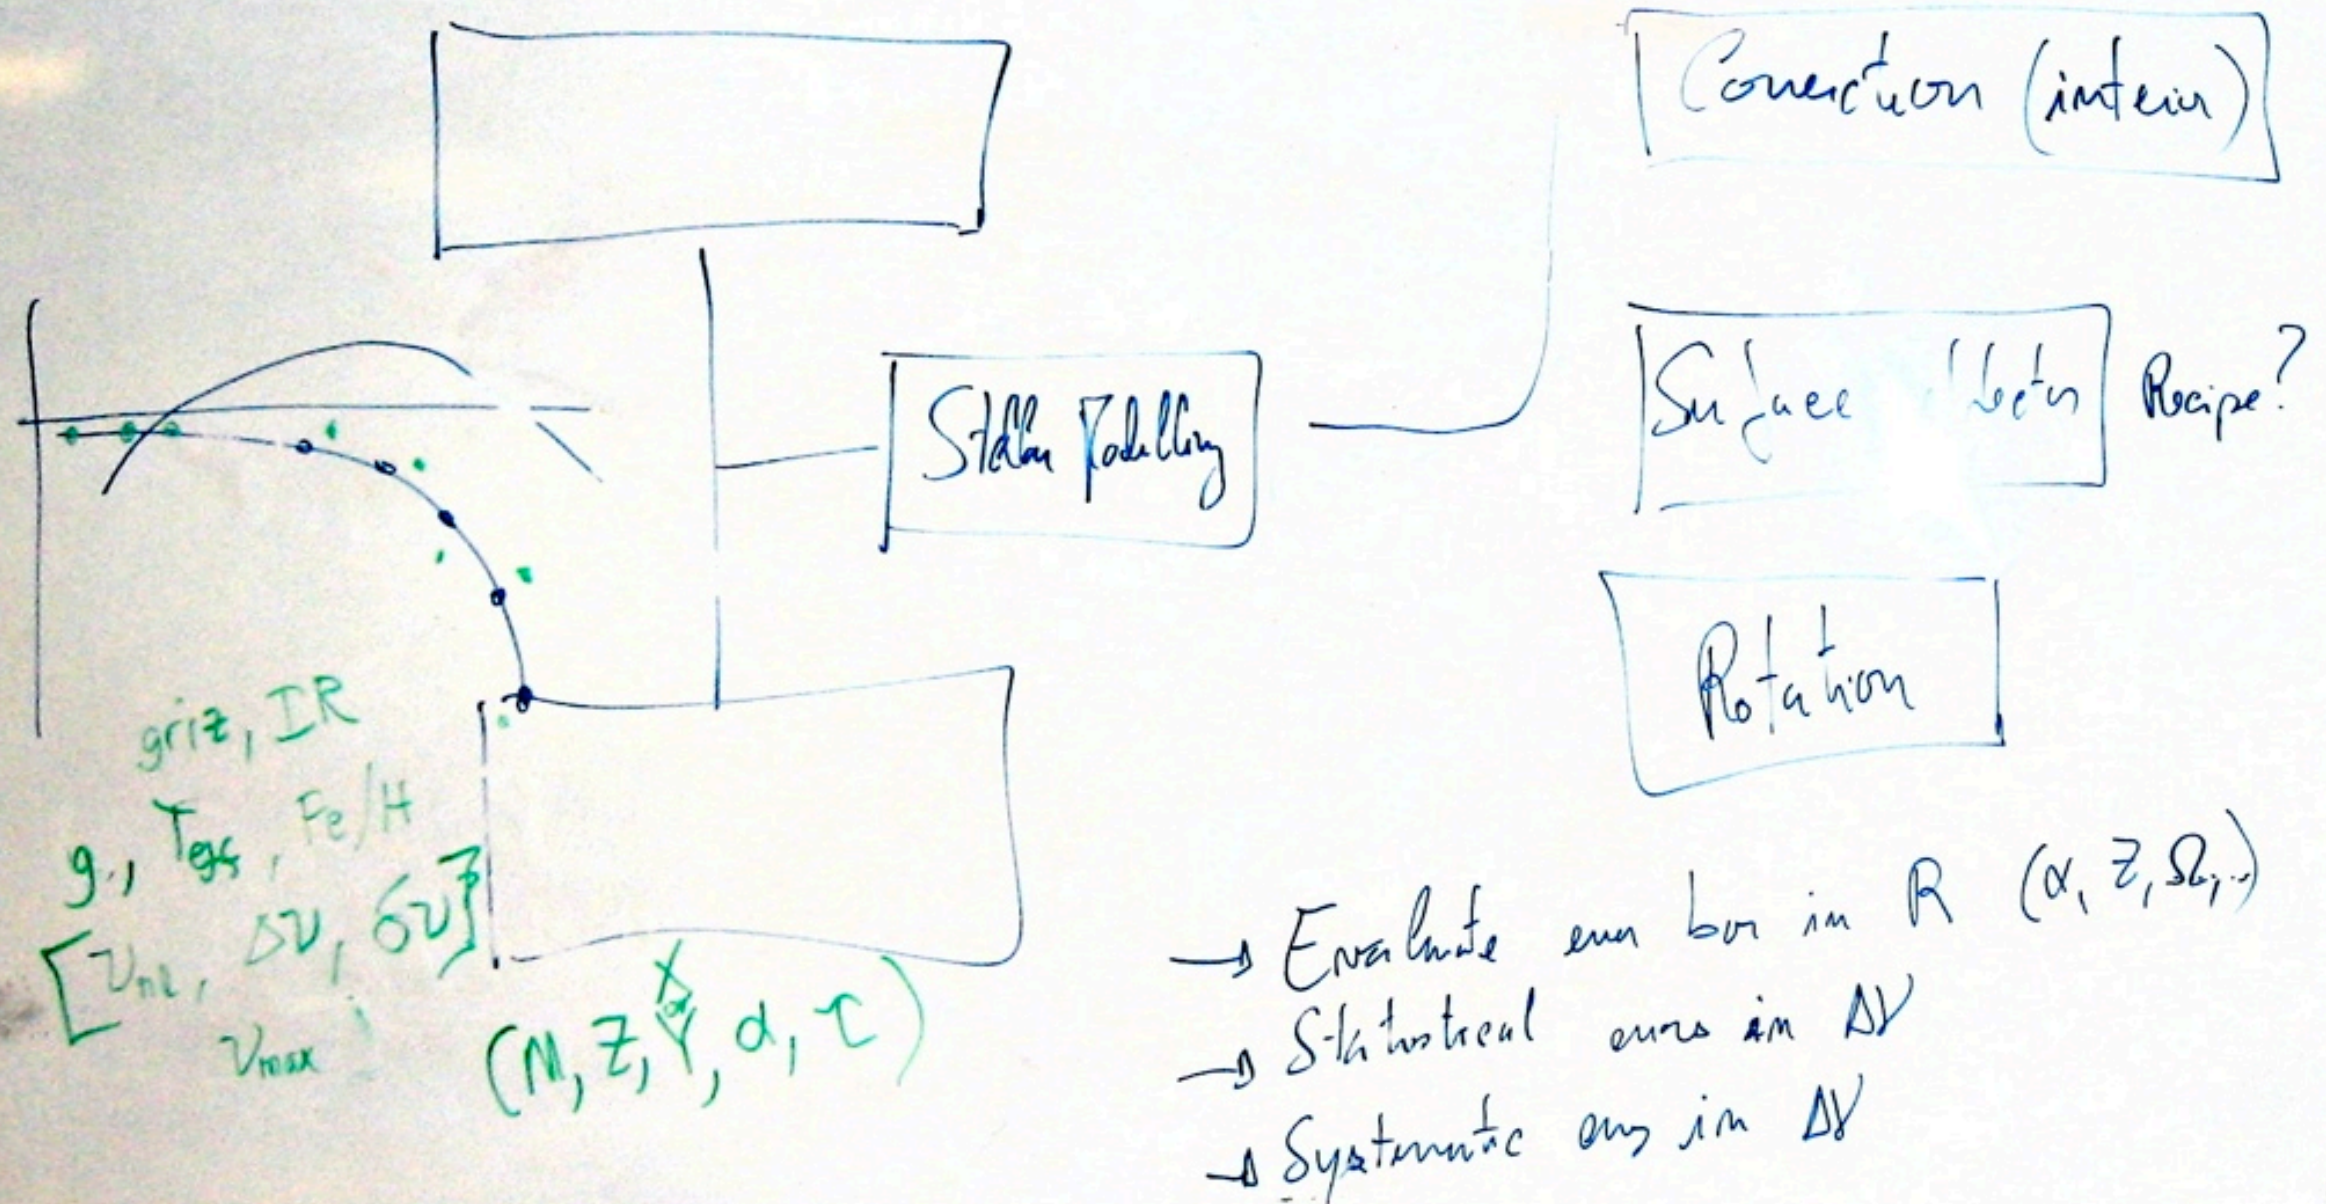 Convection (interior)
Surface effects Recipe?
Stellar Modelling
Rotation
griz, IR
g, Teff, Fe/H
[νnl, Δν, δν]
νmax
X
(M, Z, Y, α, τ)
→ Evaluate error bar in R (α, Z, Ω, ..)
→ Statistical errors in Δν
→ Systematic errors in Δν